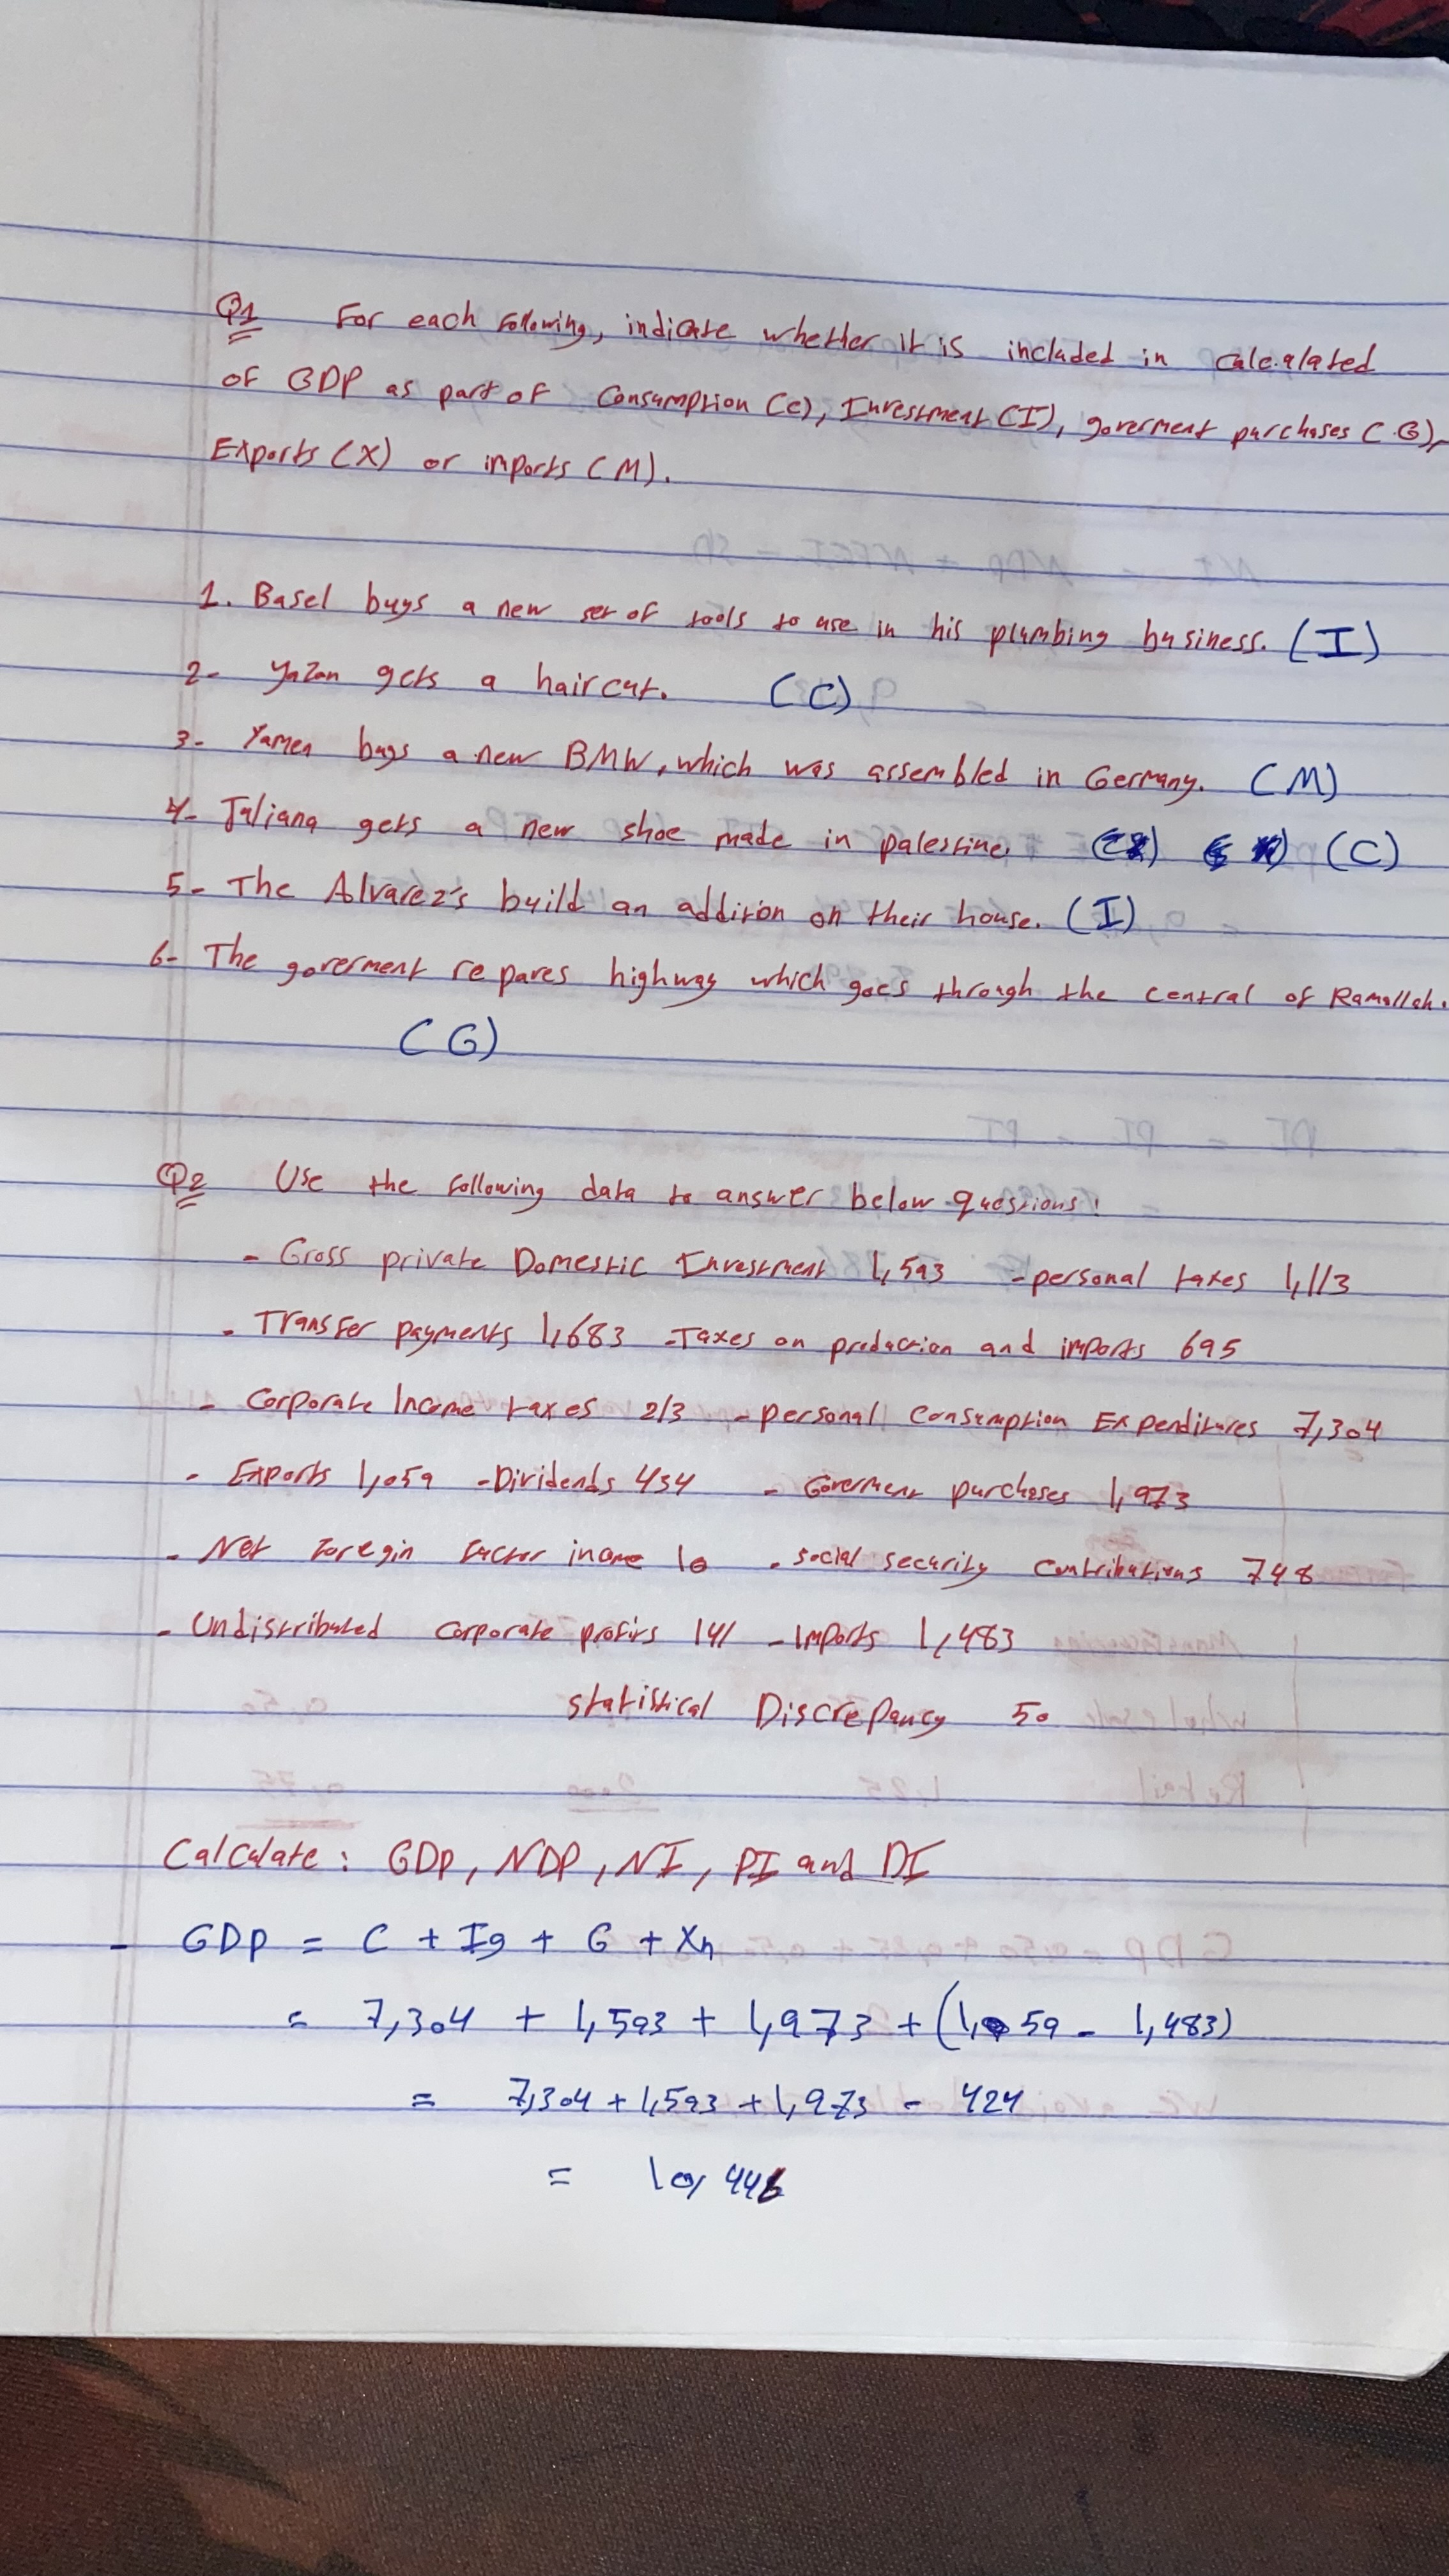 Q1 For each following, indicate whether it is included in calculated
of GDP as part of Consumption (C), Investment (I), goverment purchases (G),
Exports (X) or imports (M).
1. Basel buys a new set of tools to use in his plumbing business. (I)
2- Yazan gets a haircut. (C)
3- Yamen buys a new BMW, which was assembled in Germany. (M)
4- Juliana gets a new shoe made in palestine. (C)
5- The Alvarez's build an addition on their house. (I)
6- The goverment repares highway which goes through the central of Ramallah.
(G)
Q2 Use the following data to answer below questions:
- Gross private Domestic Investment 1,593 - personal taxes 1,113
- Transfer payments 1,683 - Taxes on production and imports 695
- Corporate Income taxes 213 - personal Consumption Expenditures 7,304
- Exports 1,059 - Dividends 434 - Goverment purchases 1,973
- Net Foregin factor income 10 - social security contributions 748
- Undistributed corporate profits 141 - Imports 1,483
statistical Discrepancy 50
Calculate: GDP, NDP, NI, PI and DI
- GDP = C + Ig + G + Xn
= 7,304 + 1,593 + 1,973 + (1,059 - 1,483)
= 7,304 + 1,593 + 1,973 - 424
= 10,446